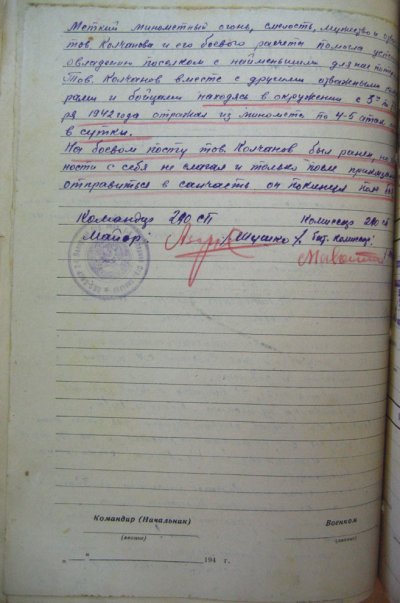 Меткий минометный огонь, смелость, мужество и
тов. Колчанова и его боевого расчета помогла
овладении поселком с наименьшими для нас
Тов. Колчанов вместе с другими отважными
рами и бойцами находясь в окружении с 5го
ря 1942 года отражал из миномета по 4-5 атак
в сутки.
На боевом посту тов. Колчанов был ранен, но
ности с себя не слагал и только после
отправиться в санчасть он покинул
Командир 240 СП Комиссар 240 СП
Майор: бат. комиссар:
Командир (Начальник) Военком
(подпись) (подпись)
„ “ 194 г.